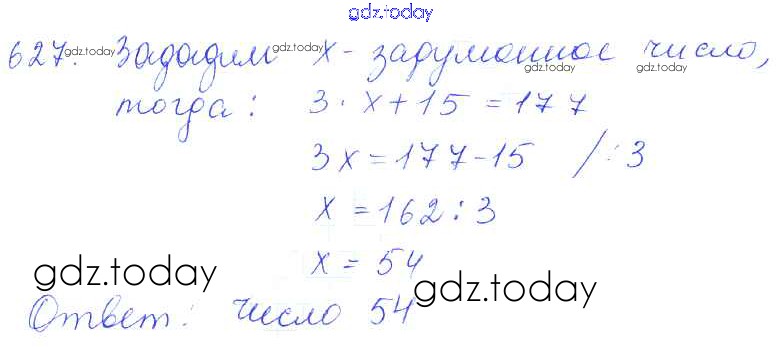 gdz.today
627. gdz.today Зададим gdz.today x - задуманное число, gdz.today
тогда: 3 · x + 15 = 177
3x = 177 - 15 / : 3
x = 162 : 3
x = 54
gdz.today
Ответ: число 54 gdz.today